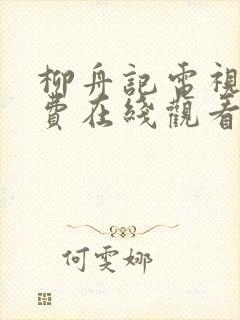 柳舟記電視
費在綫觀看
何雯娜